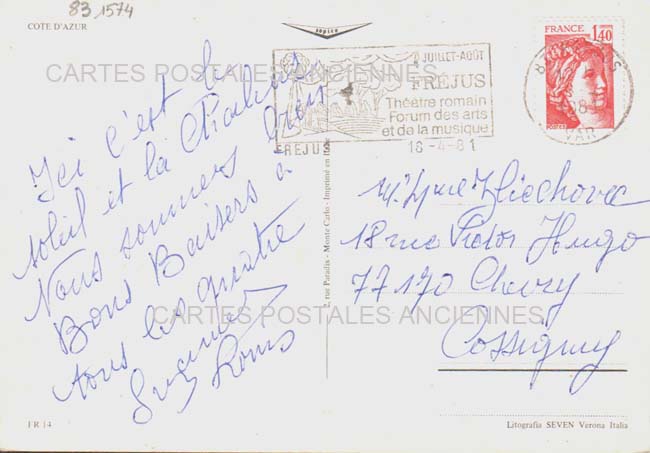 83 1574
COTE D'AZUR
sépico
CARTES POSTALES ANCIENNES
JUILLET-AOÛT
FRÉJUS
Théâtre romain
Forum des arts
et de la musique
FREJUS
16-4-81
FRANCE
1,40
POSTES
VAR
Ici c'est le
soleil et la Chaleur
Nous sommes trois
Bons Baisers à
tous les quatre
Suzanne
Louis
2, rue Paradis - Monte Carlo - Imprimé en Italie
18 rue Victor Hugo
77170 Chevry
Cossigny
CARTES POSTALES ANCIENNES
FR 14
Litografia SEVEN Verona Italia